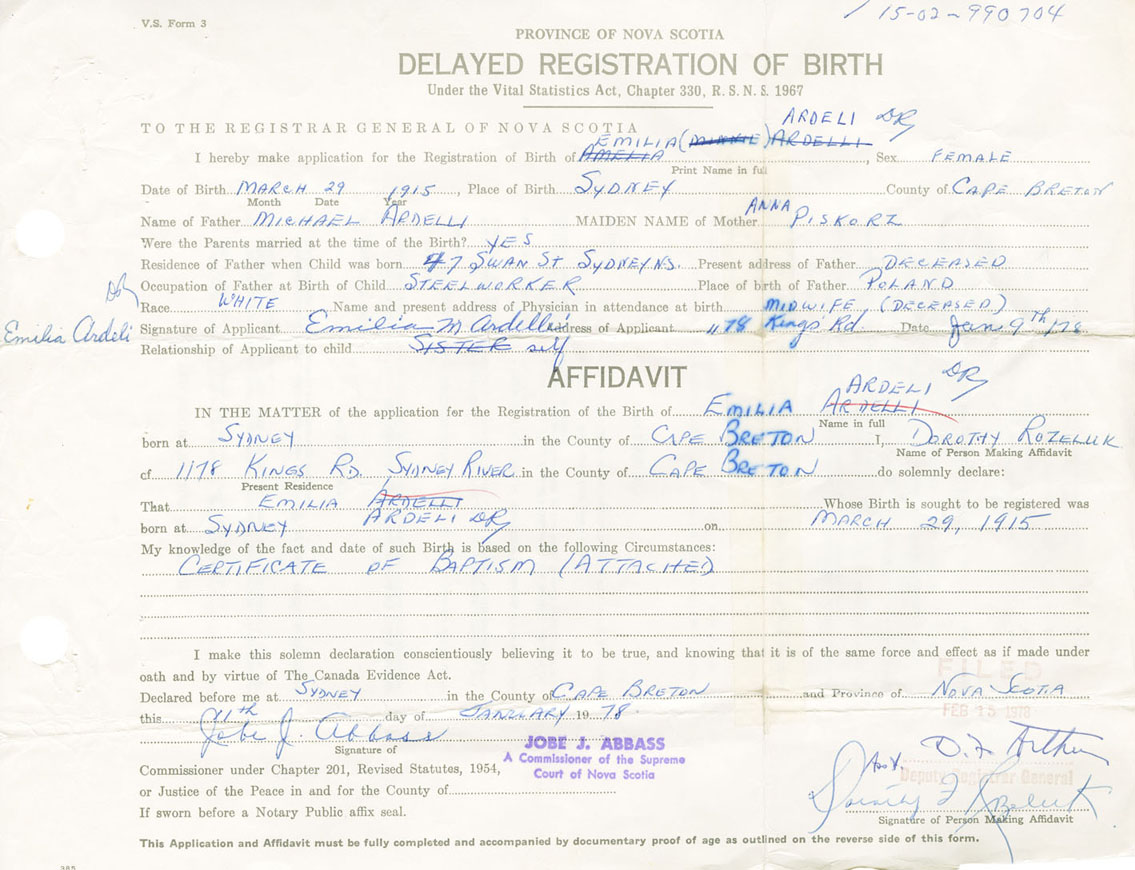 V.S. Form 3
15-02-990704
PROVINCE OF NOVA SCOTIA
DELAYED REGISTRATION OF BIRTH
Under the Vital Statistics Act, Chapter 330, R. S. N. S. 1967
ARDELI DR
TO THE REGISTRAR GENERAL OF NOVA SCOTIA
EMILIA (MINNIE) ARDELLI
I hereby make application for the Registration of Birth of AMELIA, Sex FEMALE
Print Name in full
Date of Birth MARCH 29 1915, Place of Birth SYDNEY County of CAPE BRETON
Month Date Year
ANNA
Name of Father MICHAEL ARDELLI MAIDEN NAME of Mother PISKORZ
Were the Parents married at the time of the Birth? YES
Residence of Father when Child was born 47 SWAN ST SYDNEY N.S. Present address of Father DECEASED
Occupation of Father at Birth of Child STEELWORKER Place of birth of Father POLAND
DR
Race WHITE Name and present address of Physician in attendance at birth MIDWIFE (DECEASED)
Emilia Ardeli
Signature of Applicant Emilia M. Ardelli Address of Applicant 1178 Kings Rd. Date Jan 9th/78
Relationship of Applicant to child SISTER self
AFFIDAVIT
ARDELI DR
IN THE MATTER of the application for the Registration of the Birth of EMILIA ARDELLI
Name in full
born at SYDNEY in the County of CAPE BRETON I, DOROTHY ROZELUK
Name of Person Making Affidavit
of 1178 KINGS RD. SYDNEY RIVER in the County of CAPE BRETON do solemnly declare:
Present Residence
That EMILIA ARDELLI Whose Birth is sought to be registered was
ARDELI DR
born at SYDNEY on MARCH 29, 1915
My knowledge of the fact and date of such Birth is based on the following Circumstances:
CERTIFICATE OF BAPTISM (ATTACHED)
I make this solemn declaration conscientiously believing it to be true, and knowing that it is of the same force and effect as if made under
oath and by virtue of The Canada Evidence Act.
FILED
Declared before me at SYDNEY in the County of CAPE BRETON and Province of NOVA SCOTIA
this 11th day of JANUARY 19 78.
FEB 15 1978
Jobe J. Abbass
Signature of
JOBE J. ABBASS
A Commissioner of the Supreme
Court of Nova Scotia
D. F. Arthur
Commissioner under Chapter 201, Revised Statutes, 1954,
Deputy Registrar General
or Justice of the Peace in and for the County of
Dorothy F Rozeluk
Signature of Person Making Affidavit
If sworn before a Notary Public affix seal.
This Application and Affidavit must be fully completed and accompanied by documentary proof of age as outlined on the reverse side of this form.